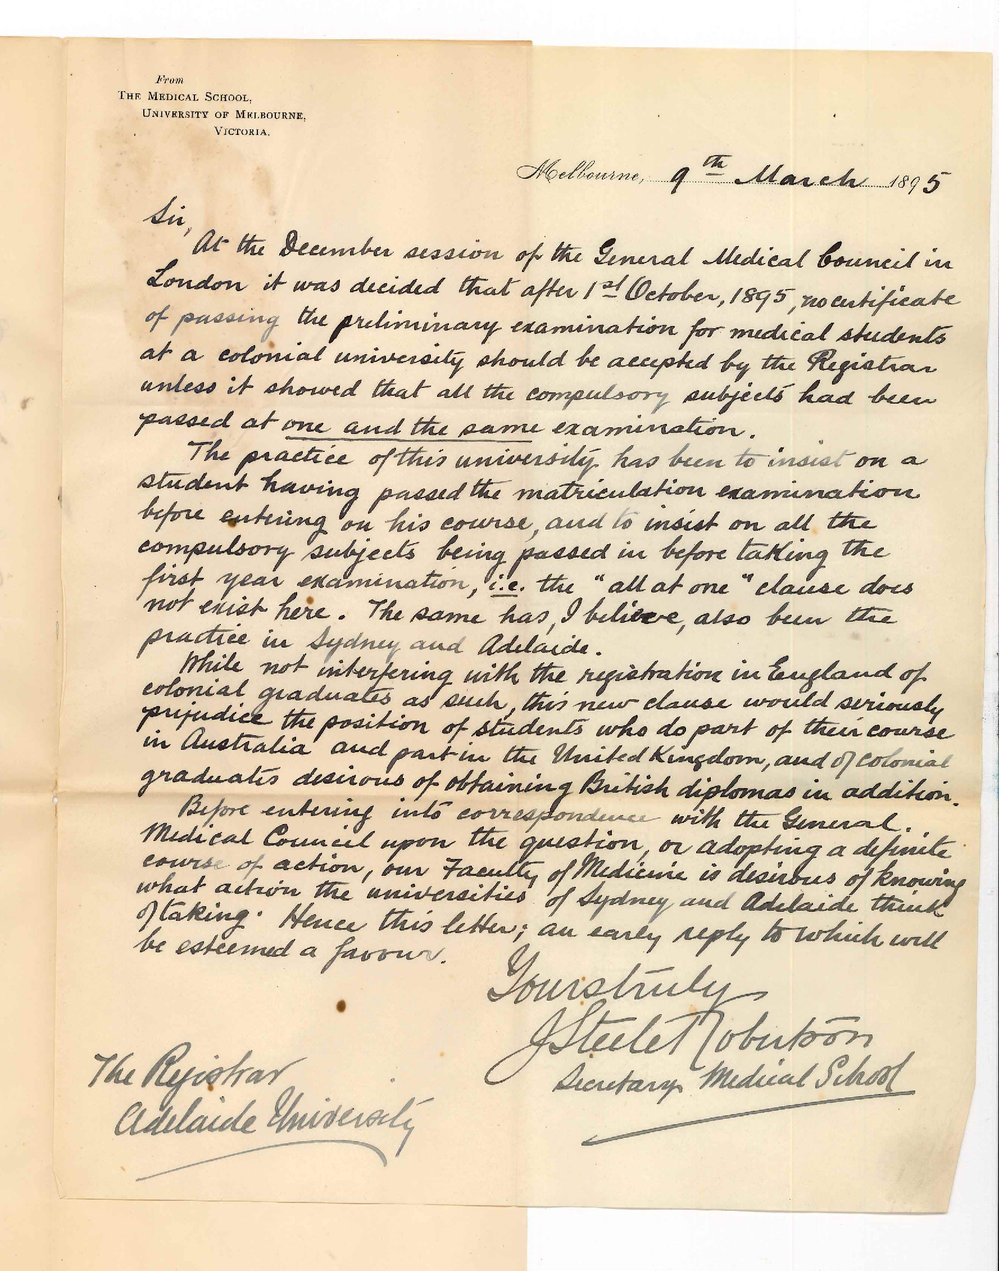 From
THE MEDICAL SCHOOL,
UNIVERSITY OF MELBOURNE,
VICTORIA.
Melbourne, 9th March 1895
Sir,
At the December session of the General Medical Council in
London it was decided that after 1st October, 1895, no certificate
of passing the preliminary examination for medical students
at a colonial university should be accepted by the Registrar
unless it showed that all the compulsory subjects had been
passed at one and the same examination.
The practice of this university has been to insist on a
student having passed the matriculation examination
before entering on his course, and to insist on all the
compulsory subjects being passed in before taking the
first year examination, i.e. the "all at one" clause does
not exist here. The same has, I believe, also been the
practice in Sydney and Adelaide.
While not interfering with the registration in England of
colonial graduates as such, this new clause would seriously
prejudice the position of students who do part of their course
in Australia and part in the United Kingdom, and of colonial
graduates desirous of obtaining British diplomas in addition.
Before entering into correspondence with the General
Medical Council upon the question, or adopting a definite
course of action, our Faculty of Medicine is desirous of knowing
what action the universities of Sydney and Adelaide think
of taking. Hence this letter; an early reply to which will
be esteemed a favour.
Yours truly
J Steele Robertson
Secretary Medical School
The Registrar
Adelaide University